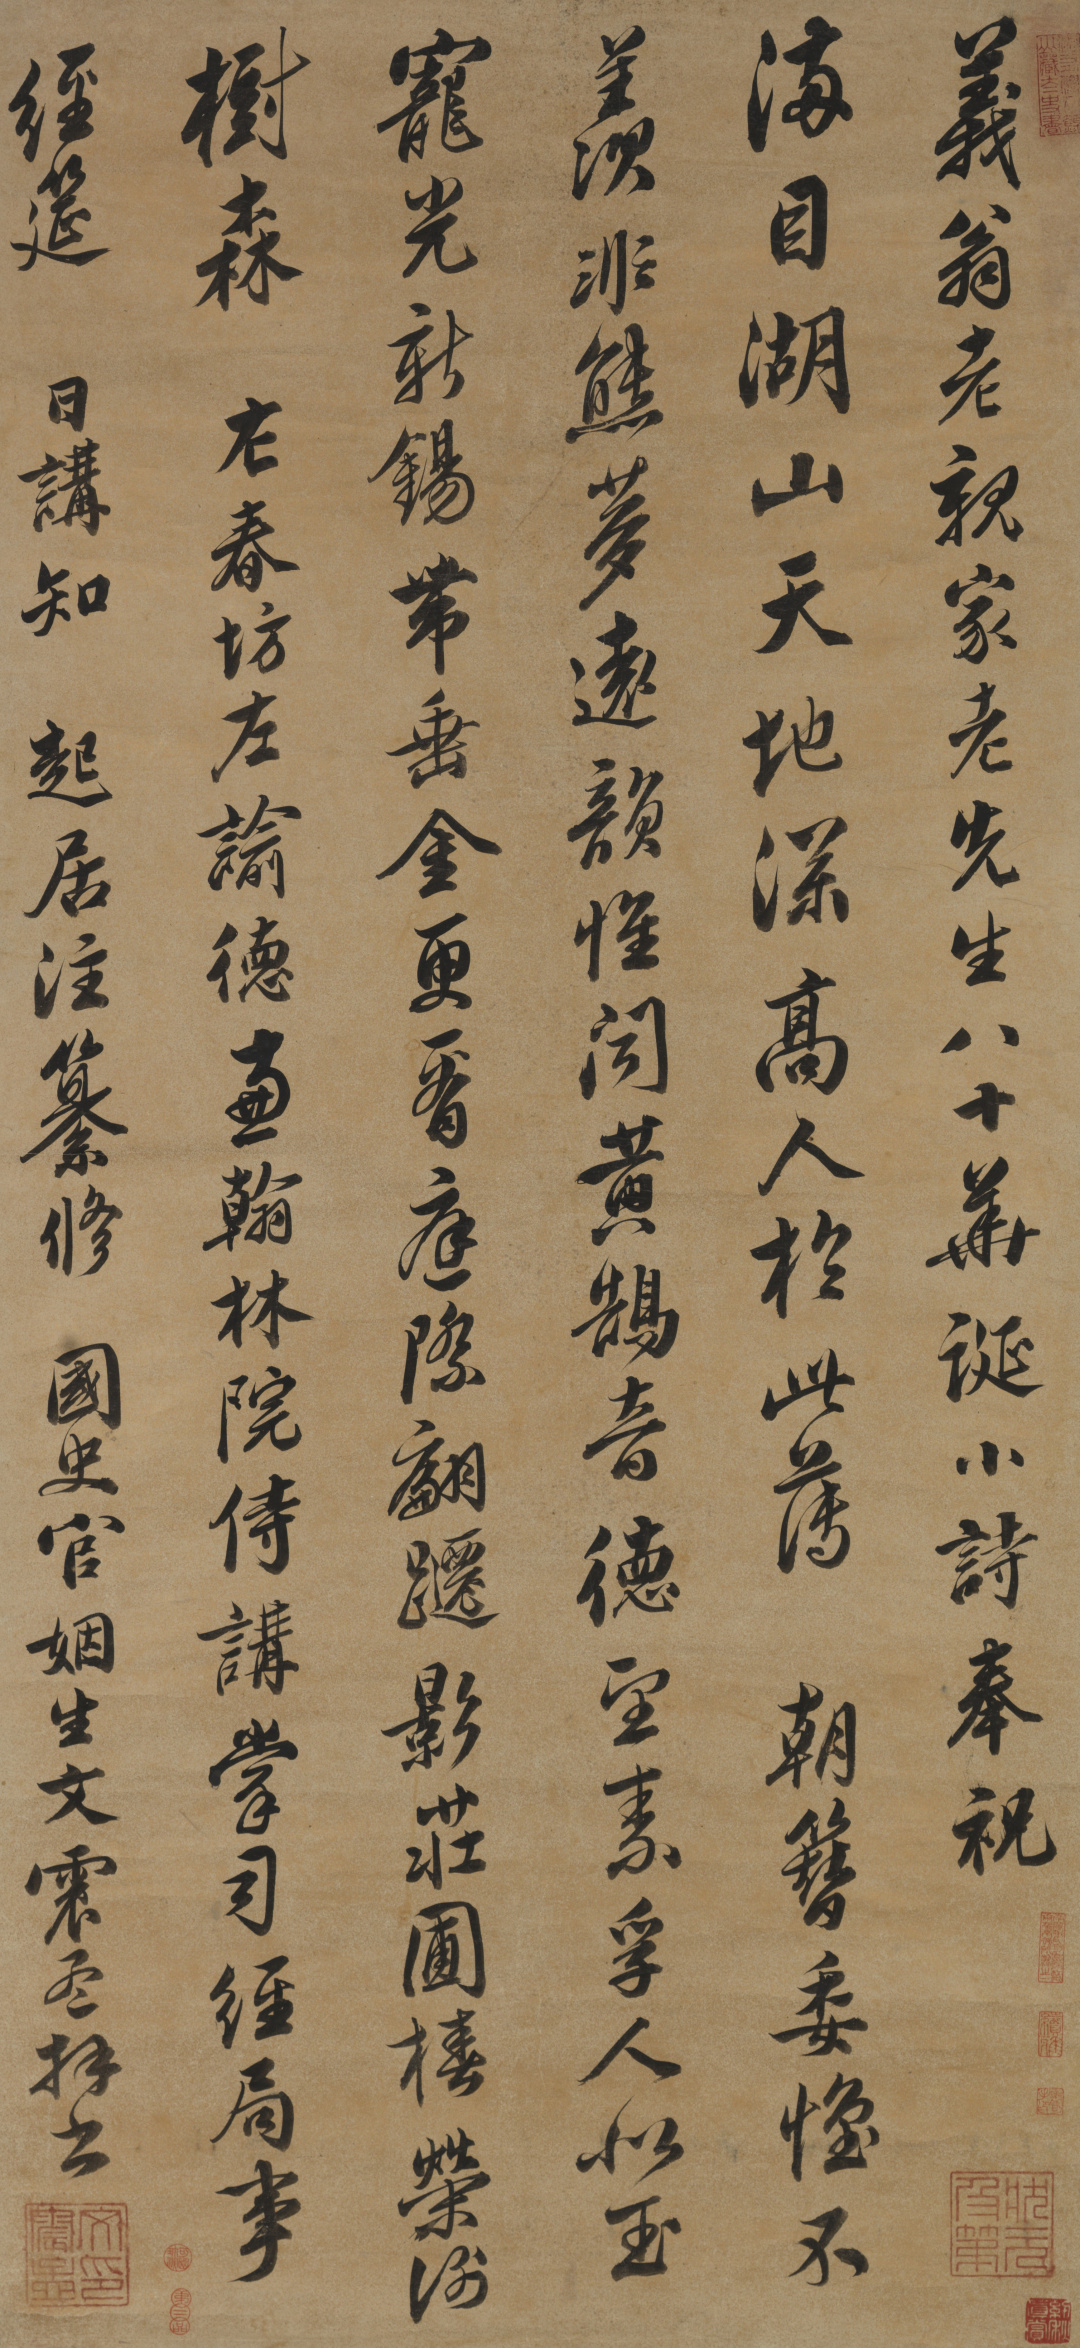 義翁老親家老先生八十華誕小詩奉祝
滿目湖山天地深高人於此薄　朝簪委懷不
羨泅非熊夢遠韻惟聞黃鵠音德望素孚人似玉
寵光新錫帶垂金更看庭際翩躚影莊圃椿榮謝
樹森　右春坊左諭德兼翰林院侍講掌司經局事
經筵　日講知　起居注纂修　國史官姻生文震孟拜書
文震孟印